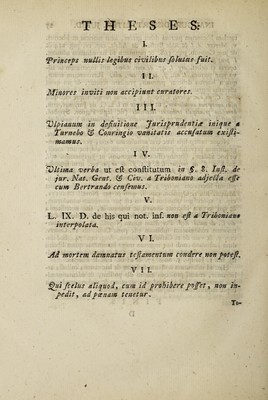 THESES:
I.
Princeps nullis legibus civilibus solutus fuit.
II.
Minores inviti non accipiunt curatores.
III.
Ulpianum in definitione Jurisprudentiæ inique a
Turnebo & Conringio vanitatis accusatum existi-
mamus.
IV.
Ultima verba ut est constitutum in §. 2. Inst. de
jur. Nat. Gent. & Civ. a Triboniano adjecta esse
cum Bertrando censemus.
V.
L. IX. D. de his qui not. inf. non est a Triboniano
interpolata.
VI.
Ad mortem damnatus testamentum condere non potest.
VII.
Qui scelus aliquod, cum id prohibere posset, non im-
pedit, ad pœnam tenetur.
To-